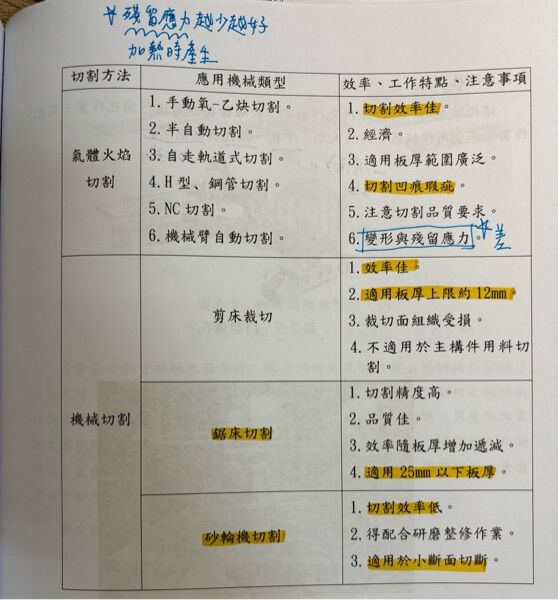 * 殘留應力越少越好
加熱時產生
切割方法 應用機械類型 效率、工作特點、注意事項
氣體火焰切割
1.手動氧-乙炔切割。
2.半自動切割。
3.自走軌道式切割。
4.H型、鋼管切割。
5.NC切割。
6.機械臂自動切割。
1.切割效率佳。
2.經濟。
3.適用板厚範圍廣泛。
4.切割凹痕瑕疵。
5.注意切割品質要求。
6.變形與殘留應力。 * 差
機械切割
剪床裁切
1.效率佳。
2.適用板厚上限約12mm。
3.裁切面組織受損。
4.不適用於主構件用料切
割。
鋸床切割
1.切割精度高。
2.品質佳。
3.效率隨板厚增加遞減。
4.適用25mm以下板厚。
砂輪機切割
1.切割效率低。
2.得配合研磨整修作業。
3.適用於小斷面切斷。